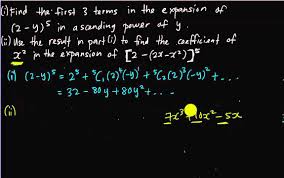 (i) Find the first 3 terms in the expansion of
(2 - y)⁵ in ascending power of y.
(ii) Use the result in part (i) to find the coefficient of
x² in the expansion of [2 - (2x - x²)]⁵
(i) (2-y)⁵ = 2⁵ + ⁵C₁(2)⁴(-y)¹ + ⁵C₂(2)³(-y)² + ...
= 32 - 80y + 80y² + ...
(ii)
7x³ + 10x² - 5x